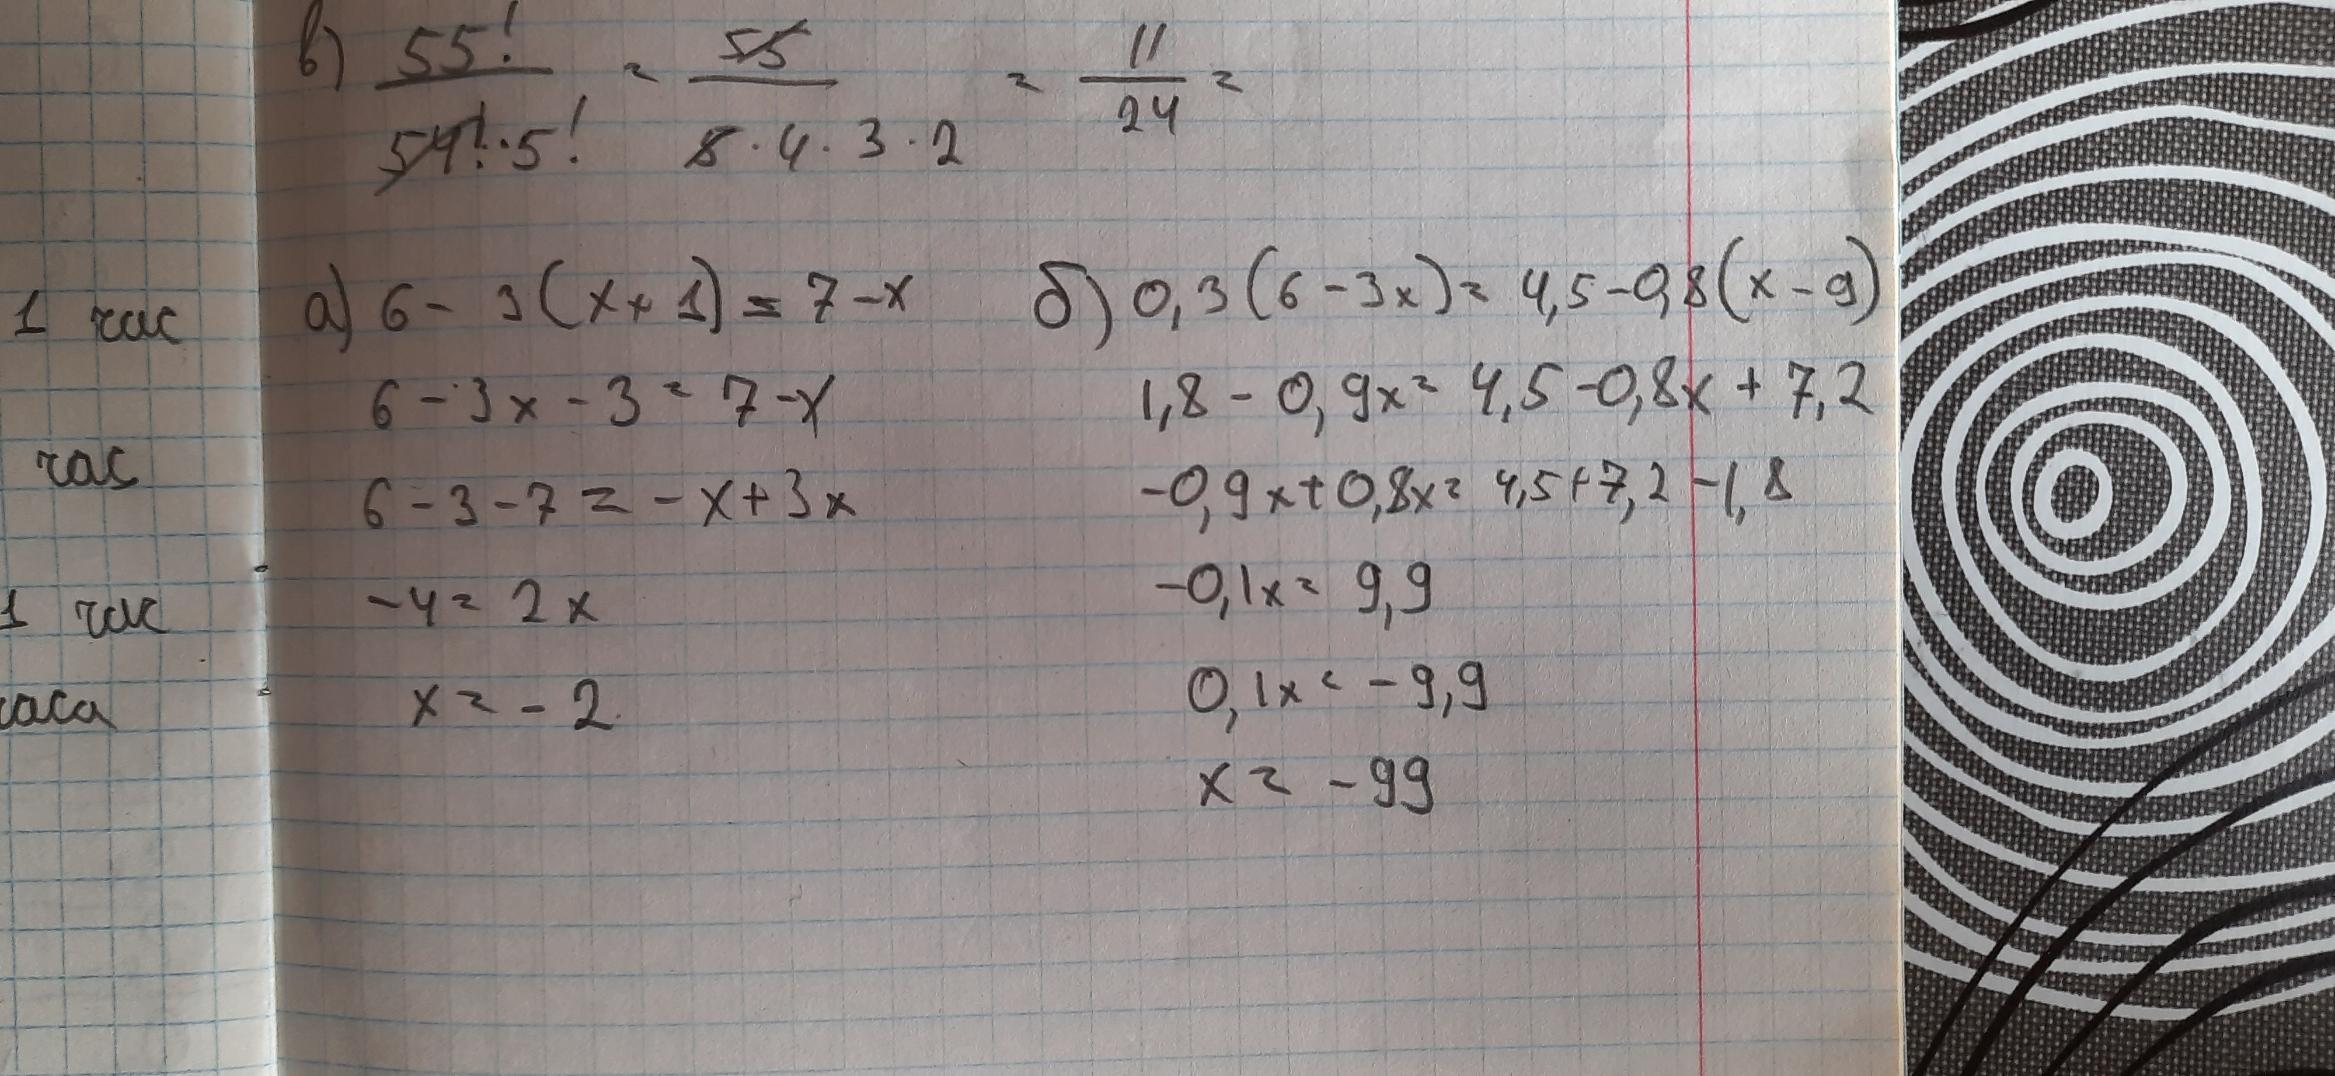 в) 55! / 54! · 5! = 55 / 5 · 4 · 3 · 2 = 11 / 24 =
1 час
час
1 час
часа
а) 6 - 3(x + 1) = 7 - x
6 - 3x - 3 = 7 - x
6 - 3 - 7 = -x + 3x
-4 = 2x
x = -2
б) 0,3(6 - 3x) = 4,5 - 0,8(x - 9)
1,8 - 0,9x = 4,5 - 0,8x + 7,2
-0,9x + 0,8x = 4,5 + 7,2 - 1,8
-0,1x = 9,9
0,1x = -9,9
x = -99